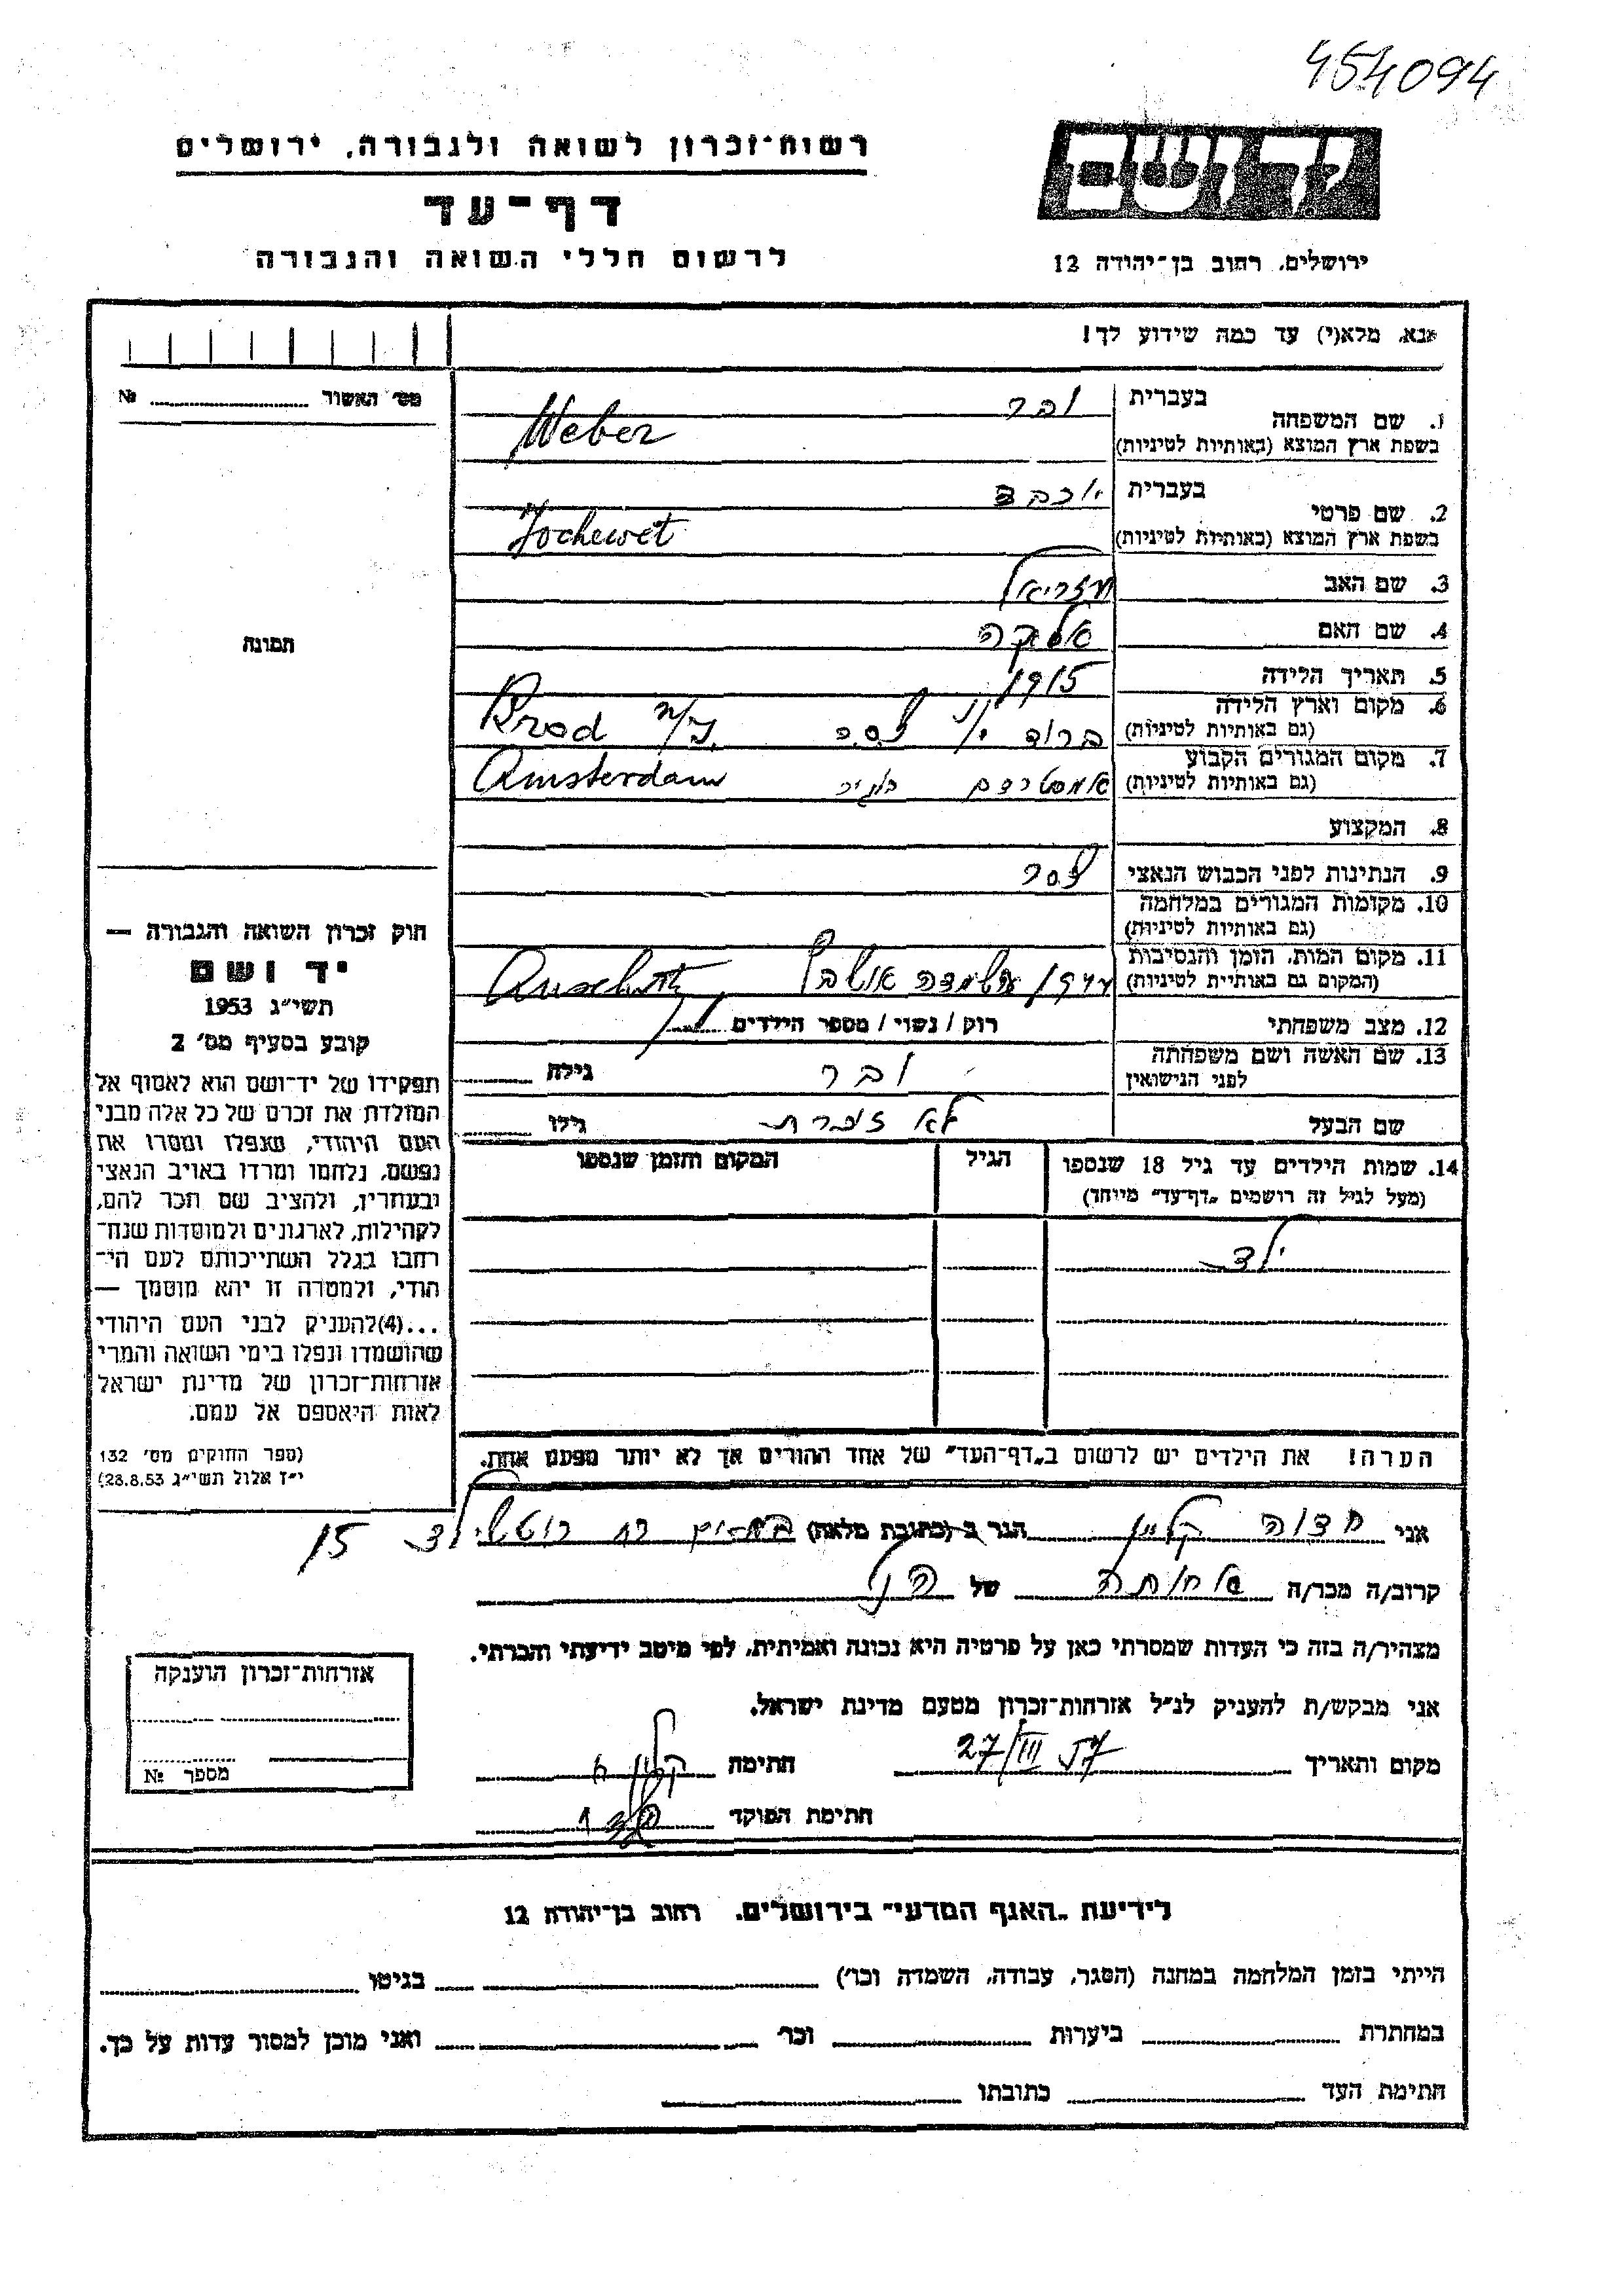 454094
רשות־זכרון לשואה ולגבורה, ירושלים
דף־עד
לרשום חללי השואה והגבורה
יד ושם
ירושלים, רחוב בן־יהודה 12
אנא, מלא(י) עד כמה שידוע לך!
מס׳ האשור № 
1. שם המשפחה בעברית ובר
בשפת ארץ המוצא (באותיות לטיניות) Weber
2. שם פרטי בעברית יוכבד
בשפת ארץ המוצא (באותיות לטיניות) Jochewet
3. שם האב עזריאל
4. שם האם
5. תאריך הלידה 1915
6. מקום וארץ הלידה
(גם באותיות לטיניות) ברוד Brod
7. מקום המגורים הקבוע
(גם באותיות לטיניות) אמסטרדם Amsterdam
8. המקצוע
9. הנתינות לפני הכבוש הנאצי
10. מקומות המגורים במלחמה
(גם באותיות לטיניות)
11. מקום המות, הזמן והנסיבות
(המקום גם באותיות לטיניות) 1942
12. מצב משפחתי רוק / נשוי / מספר הילדים 1
13. שם האשה ושם משפחתה
לפני הנישואין ובר גילה
שם הבעל לא זוכרת גילו
14. שמות הילדים עד גיל 18 שנספו
(מעל לגיל זה רושמים „דף־עד״ מיוחד)
הגיל
המקום והזמן שנספו
ילד
הערה! את הילדים יש לרשום ב„דף־העד״ של אחד ההורים אך לא יותר מפעם אחת.
תמונה
חוק זכרון השואה והגבורה —
יד ושם
תשי״ג 1953
קובע בסעיף מס׳ 2
תפקידו של יד־ושם הוא לאסוף אל
המולדת את זכרם של כל אלה מבני
העם היהודי, שנפלו ומסרו את
נפשם, נלחמו ומרדו באויב הנאצי
ובעוזריו, ולהציב שם וזכר להם,
לקהילות, לארגונים ולמוסדות שנח־
רבו בגלל השתייכותם לעם הי־
הודי, ולמטרה זו יהא מוסמך —
...(4)להעניק לבני העם היהודי
שהושמדו ונפלו בימי השואה והמרי
אזרחות־זכרון של מדינת ישראל
לאות היאספם אל עמם.
(ספר החוקים מס׳ 132
י״ז אלול תשי״ג 28.8.53)
אני חדוה קליין הגר ב (כתובת מלאה) רוטשילד 15
קרוב/ה מכר/ה אחותה של הנ״ל
מצהיר/ה בזה כי העדות שמסרתי כאן על פרטיה היא נכונה ואמיתית, לפי מיטב ידיעתי והכרתי.
אני מבקש/ת להעניק לנ״ל אזרחות־זכרון מטעם מדינת ישראל.
מקום ותאריך 27/III 57 חתימה קליין ח
חתימת הפוקד
אזרחות־זכרון הוענקה
מספר №
לידיעת „האגף המדעי״ בירושלים, רחוב בן־יהודה 12
הייתי בזמן המלחמה במחנה (הסגר, עבודה, השמדה וכו׳) בגיטו
במחתרת ביערות וכו׳ ואני מוכן למסור עדות על כך.
חתימת העד כתובתו